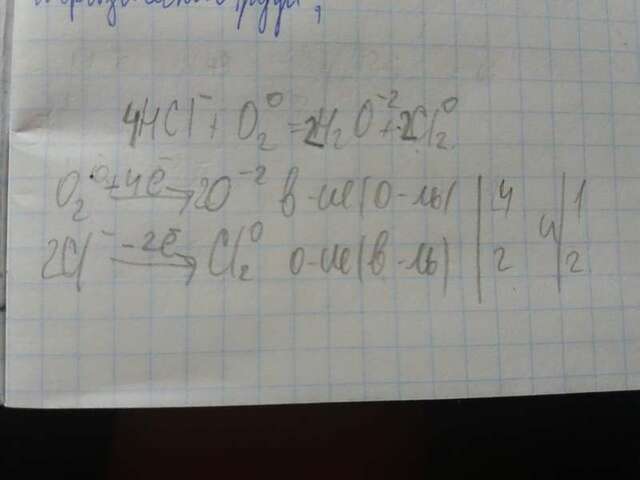 4HCl⁻ + O₂⁰ = 2H₂O⁻² + 2Cl₂⁰
O₂⁰ +4ē → 2O⁻² в-ие (о-ль) | 4 | 4 | 1
2Cl⁻ -2ē → Cl₂⁰ о-ие (в-ль) | 2 | | 2